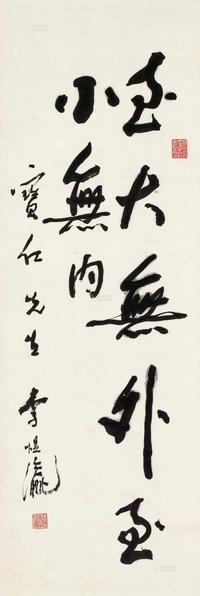 至大無外至
小無內
寶仁先生 李恒瀛